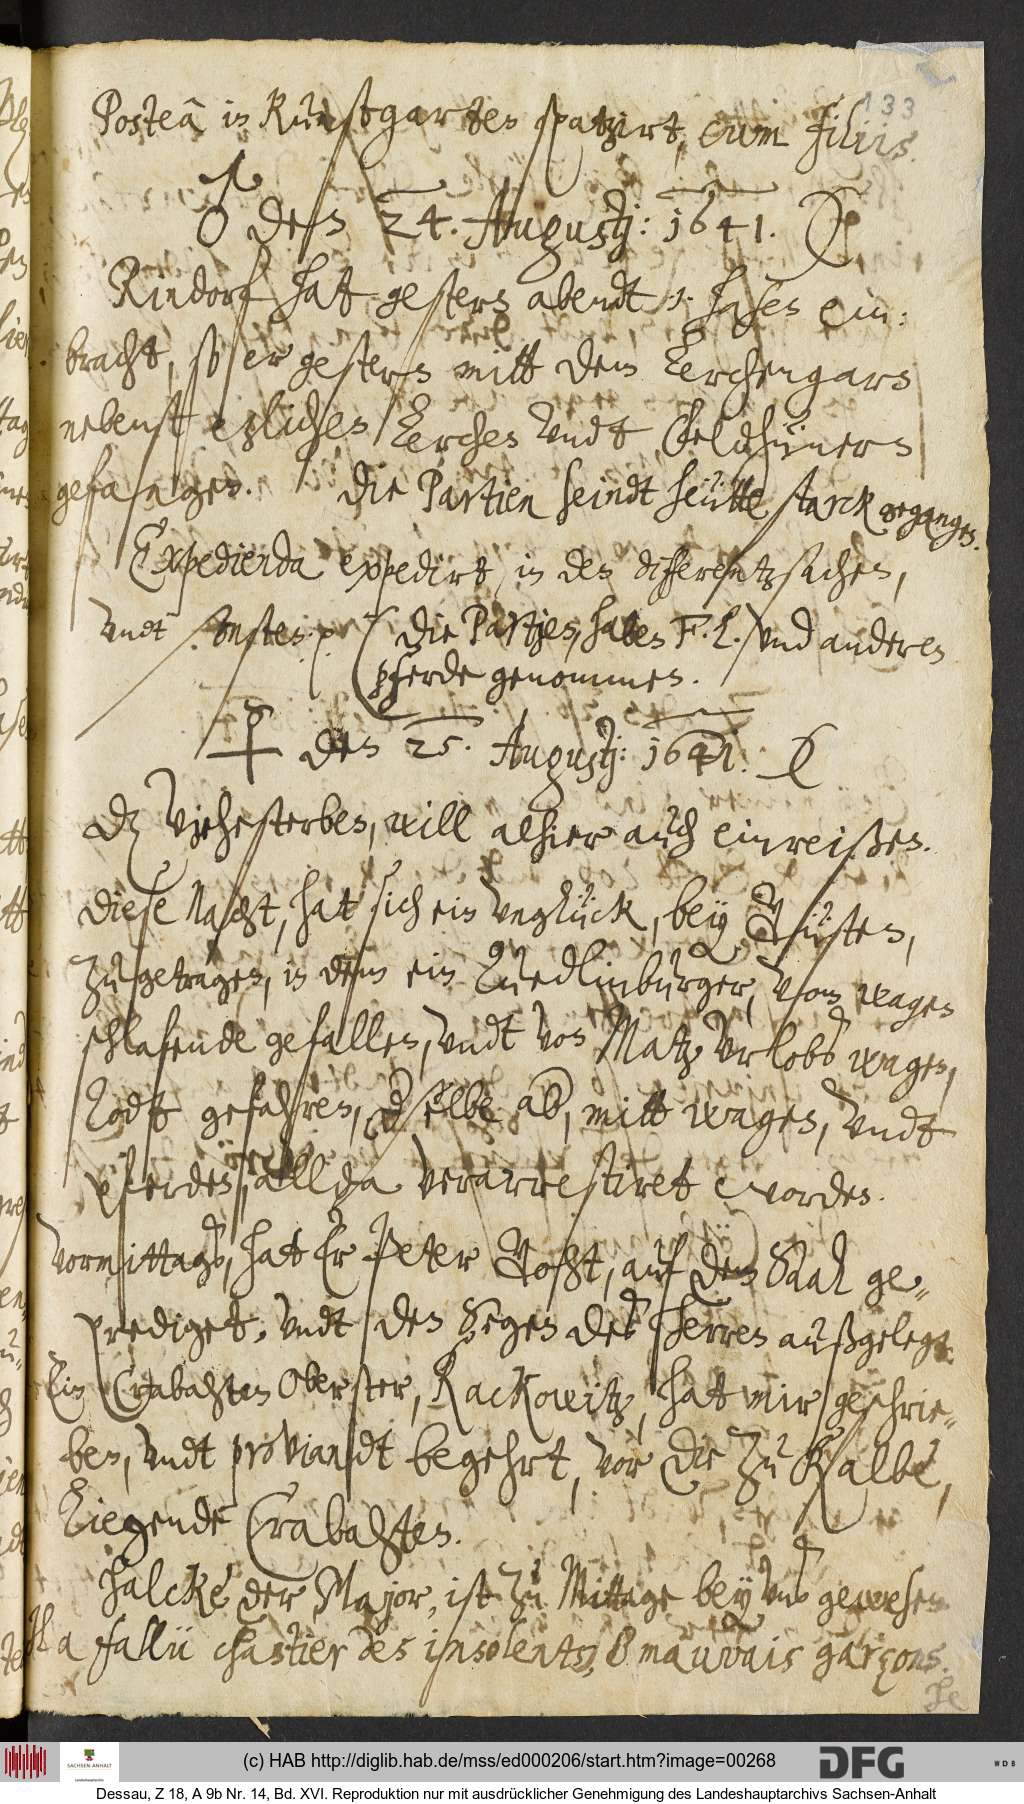 133
Posteà in Kunstgarten spatzirt, cum filiis.
♂ den 24. Augustj: 1641.
Rindorf hat gestern abendt 1. hasen ein:
bracht, so er gestern mitt dem Lerchengarn
nebenst etzlichen Lerchen undt Feldhünern
gefangen. Die Partien seindt heütte starck gegangen.
Expedienda expedirt, in den differentzsachen,
undt sonsten. p Die Partjen, haben F. L. und anderen
pferde genommen.
den 25. Augustj: 1641.
Dz Viehesterben, will alhier auch einreißen.
Diese Nacht, hat sich ein unglück, bey
zugetragen, in dem ein Quedlinburger, vom wagen
schlafende gefallen, undt von Matz Urlobs wagen,
Todt gefahren, derselbe ab, mitt wagen, undt
pferden, allda verarrestiret worden.
Vormittags, hat Er Peter auf dem Saal ge-
prediget, undt den Segen des Herren außgelegt.
Ein Crabahten Oberster, Rackowitz, hat mir geschrie-
ben, undt proviandt begehrt, vor die zu Kalbe,
Liegende Crabahten.
Halcke der Major, ist zu Mittage bey uns gewesen
Il a fallü chastier des insolents, & mauvais garçons.
(c) HAB http://diglib.hab.de/mss/ed000206/start.htm?image=00268
SACHSEN-ANHALT
Landeshauptarchiv
DFG
WDB
Dessau, Z 18, A 9b Nr. 14, Bd. XVI. Reproduktion nur mit ausdrücklicher Genehmigung des Landeshauptarchivs Sachsen-Anhalt